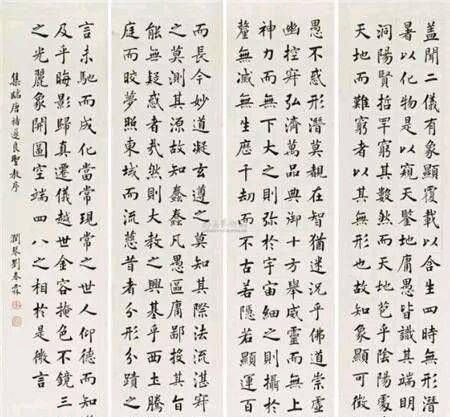 蓋聞二儀有象顯覆載以含生四時無形潛
暑以化物是以窺天鑒地庸愚皆識其端明
洞陽賢哲罕窮其數然而天地苞乎陰陽處
天地而難窮者以其無形也故知象顯可徵
愚不惑形潛莫覩在智猶迷況乎佛道崇虛
幽控寂弘濟萬品典御十方舉威靈而無上
神力而無下大之則彌於宇宙細之則攝於
釐無滅無生歷千劫而不古若隱若顯運百
而長今妙道凝玄遵之莫知其際法流湛寂
之莫測其源故知蠢蠢凡愚區庸鄙投其旨
能無疑惑者哉然則大教之興基乎西土騰
庭而皎夢照東域而流慈昔者分形分蹟之
言未馳而成化當常現常之世人仰德而知
及乎晦影歸真遷儀越世金容掩色不鏡三
之光麗象開圖空端四八之相於是微言
集臨唐褚遂良聖教序
潤琴劉春霖